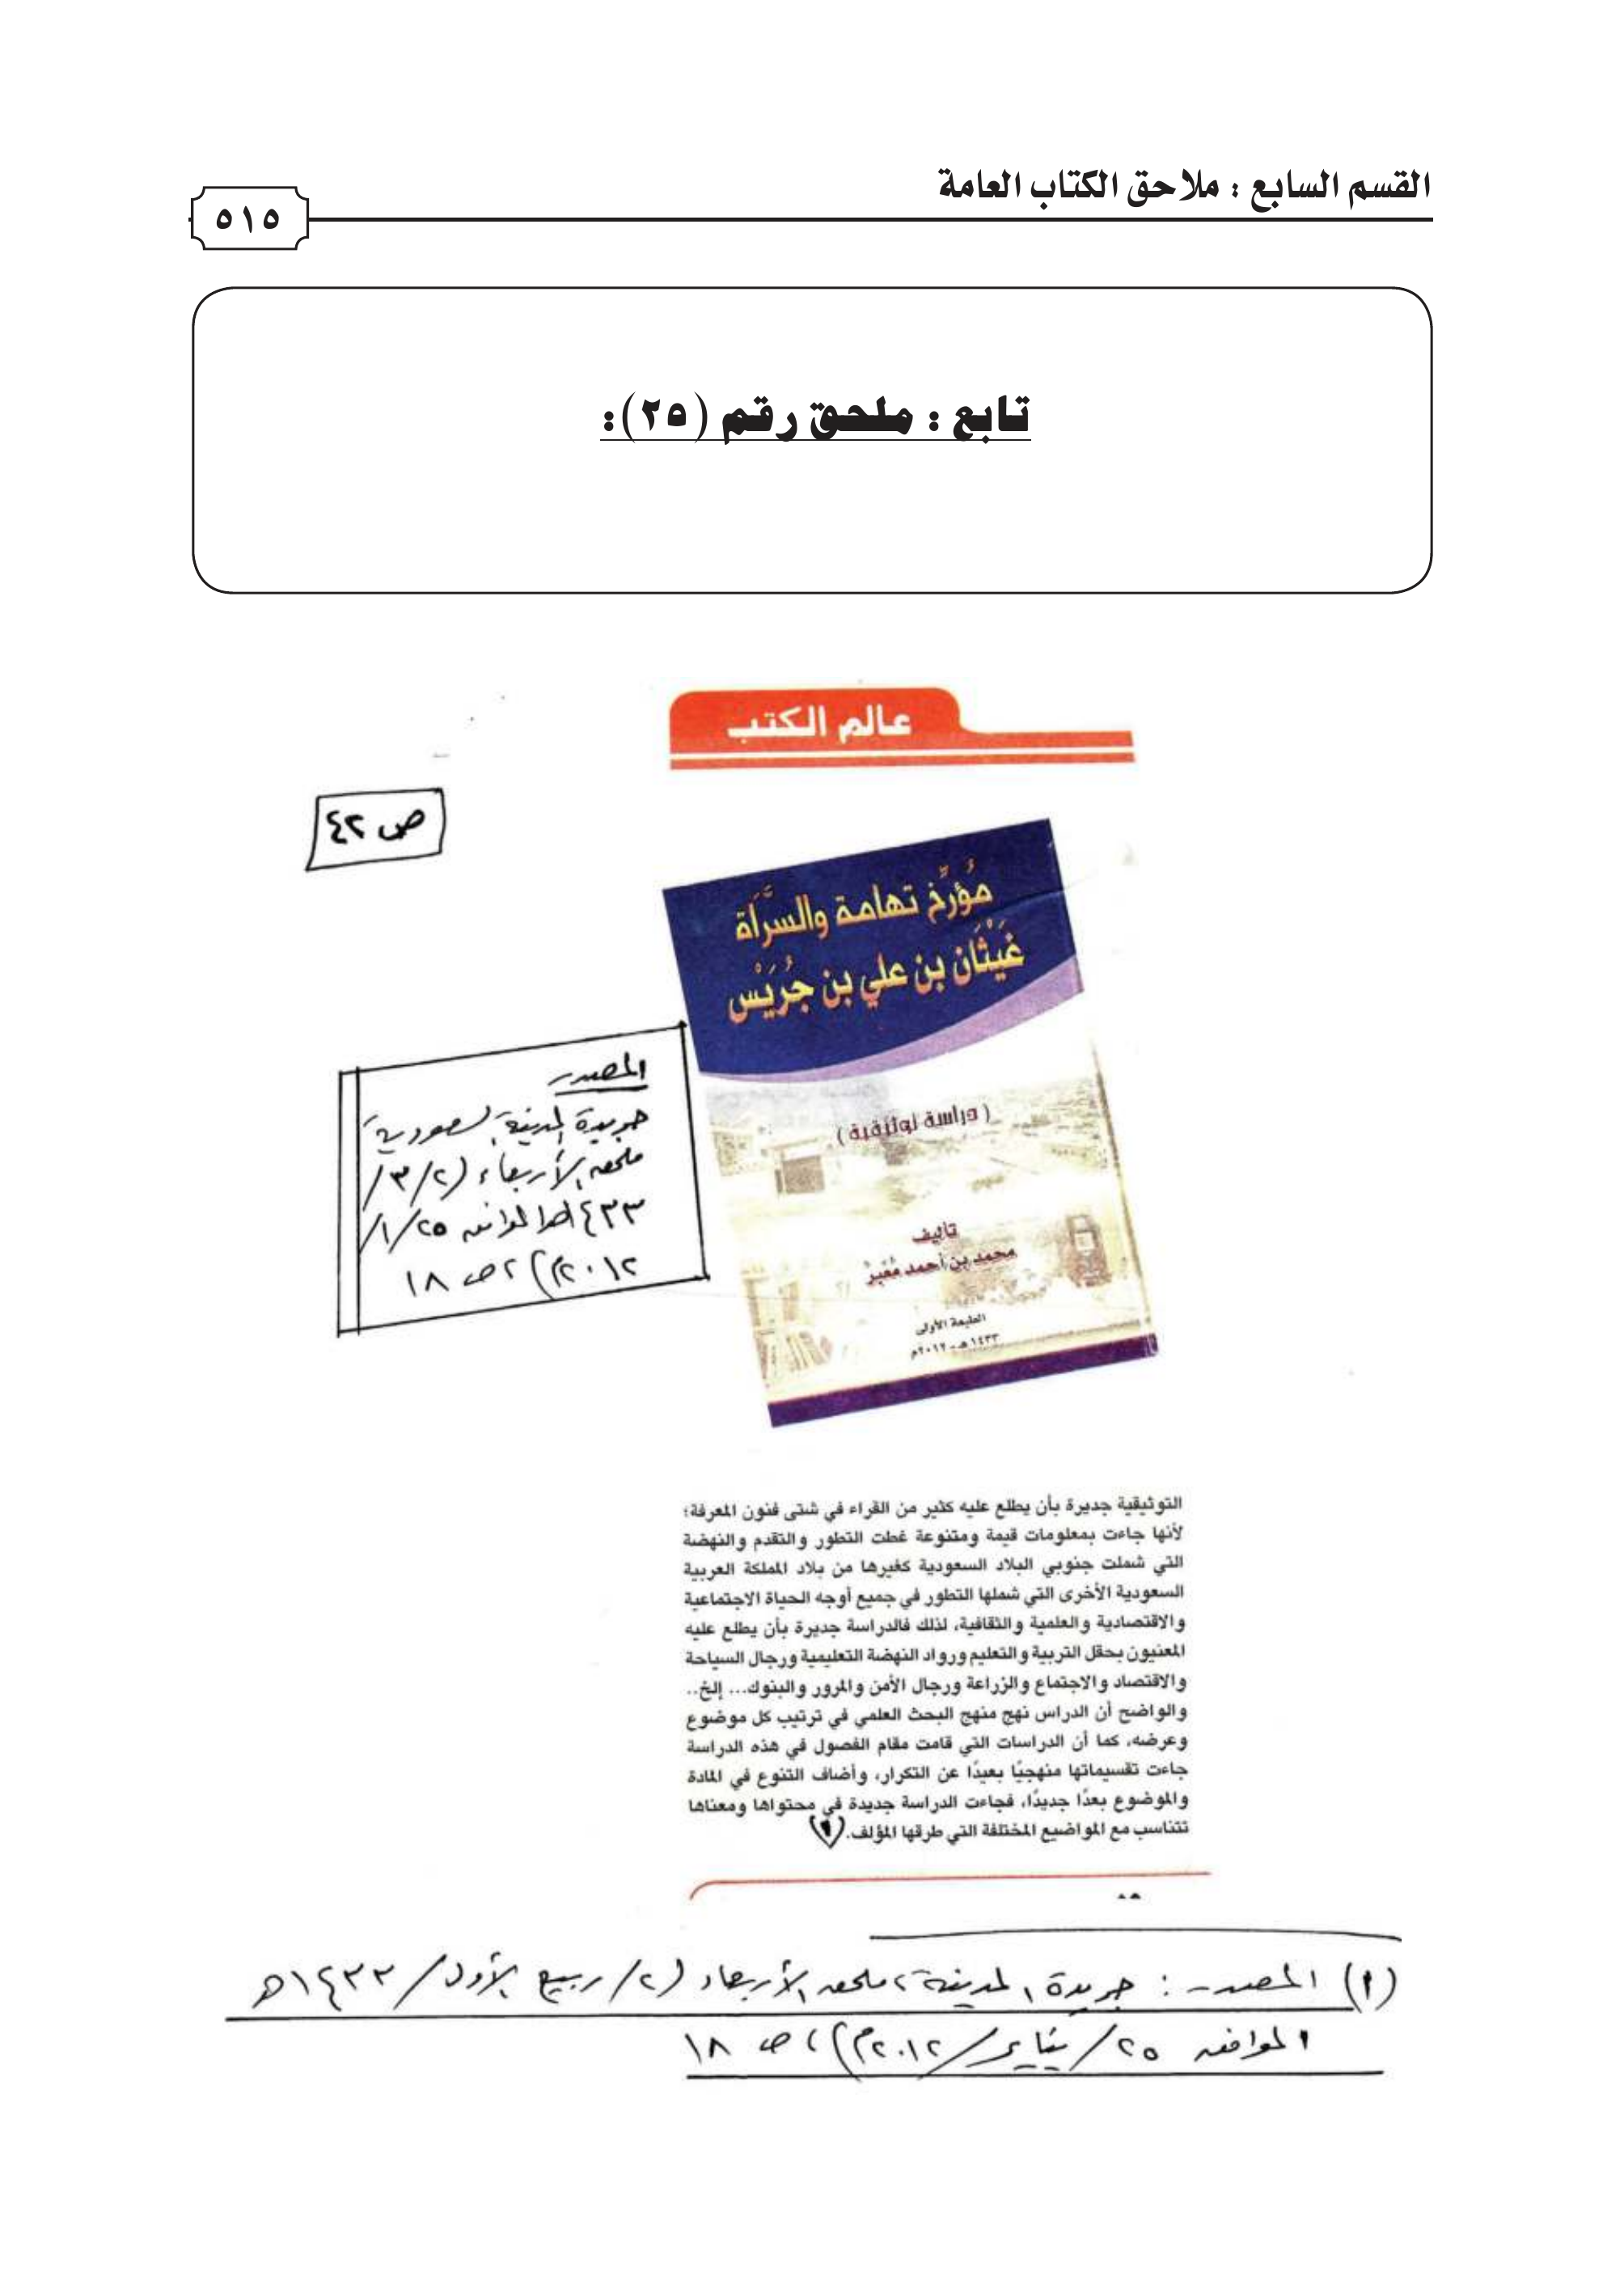 القسم السابع : ملاحق الكتاب العامة
٥١٥
تابع : ملحق رقم (٢٥):
عالم الكتب
ص ٤٢
مُؤرِّخ تهامة والسَّرَاة
غَيْثَان بن علي بن جُرَيْس
(دراسة توثيقية)
تأليف
محمد بن أحمد مُعَبِّرْ
الطبعة الأولى
١٤٣٣هـ - ٢٠١٢م
المصدر
جريدة المدينة السعودية
ملحق الأربعاء (٢/٣/
١٤٣٣هـ الموافق ٢٥/١/
٢٠١٢م) ، ص ١٨
التوثيقية جديرة بأن يطلع عليه كثير من القراء في شتى فنون المعرفة؛
لأنها جاءت بمعلومات قيمة ومتنوعة غطت التطور والتقدم والنهضة
التي شملت جنوبي البلاد السعودية كغيرها من بلاد المملكة العربية
السعودية الأخرى التي شملها التطور في جميع أوجه الحياة الاجتماعية
والاقتصادية والعلمية والثقافية، لذلك فالدراسة جديرة بأن يطلع عليه
المعنيون بحقل التربية والتعليم ورواد النهضة التعليمية ورجال السياحة
والاقتصاد والاجتماع والزراعة ورجال الأمن والمرور والبنوك... إلخ..
والواضح أن الدراس نهج منهج البحث العلمي في ترتيب كل موضوع
وعرضه، كما أن الدراسات التي قامت مقام الفصول في هذه الدراسة
جاءت تقسيماتها منهجيًا بعيدًا عن التكرار، وأضاف التنوع في المادة
والموضوع بعدًا جديدًا، فجاءت الدراسة جديدة في محتواها ومعناها
تتناسب مع المواضيع المختلفة التي طرقها المؤلف. (١)
(١) المصدر : جريدة المدينة ، ملحق الأربعاء (٢/ ربيع الأول/ ١٤٣٣هـ
الموافق ٢٥/ يناير/ ٢٠١٢م) ، ص ١٨